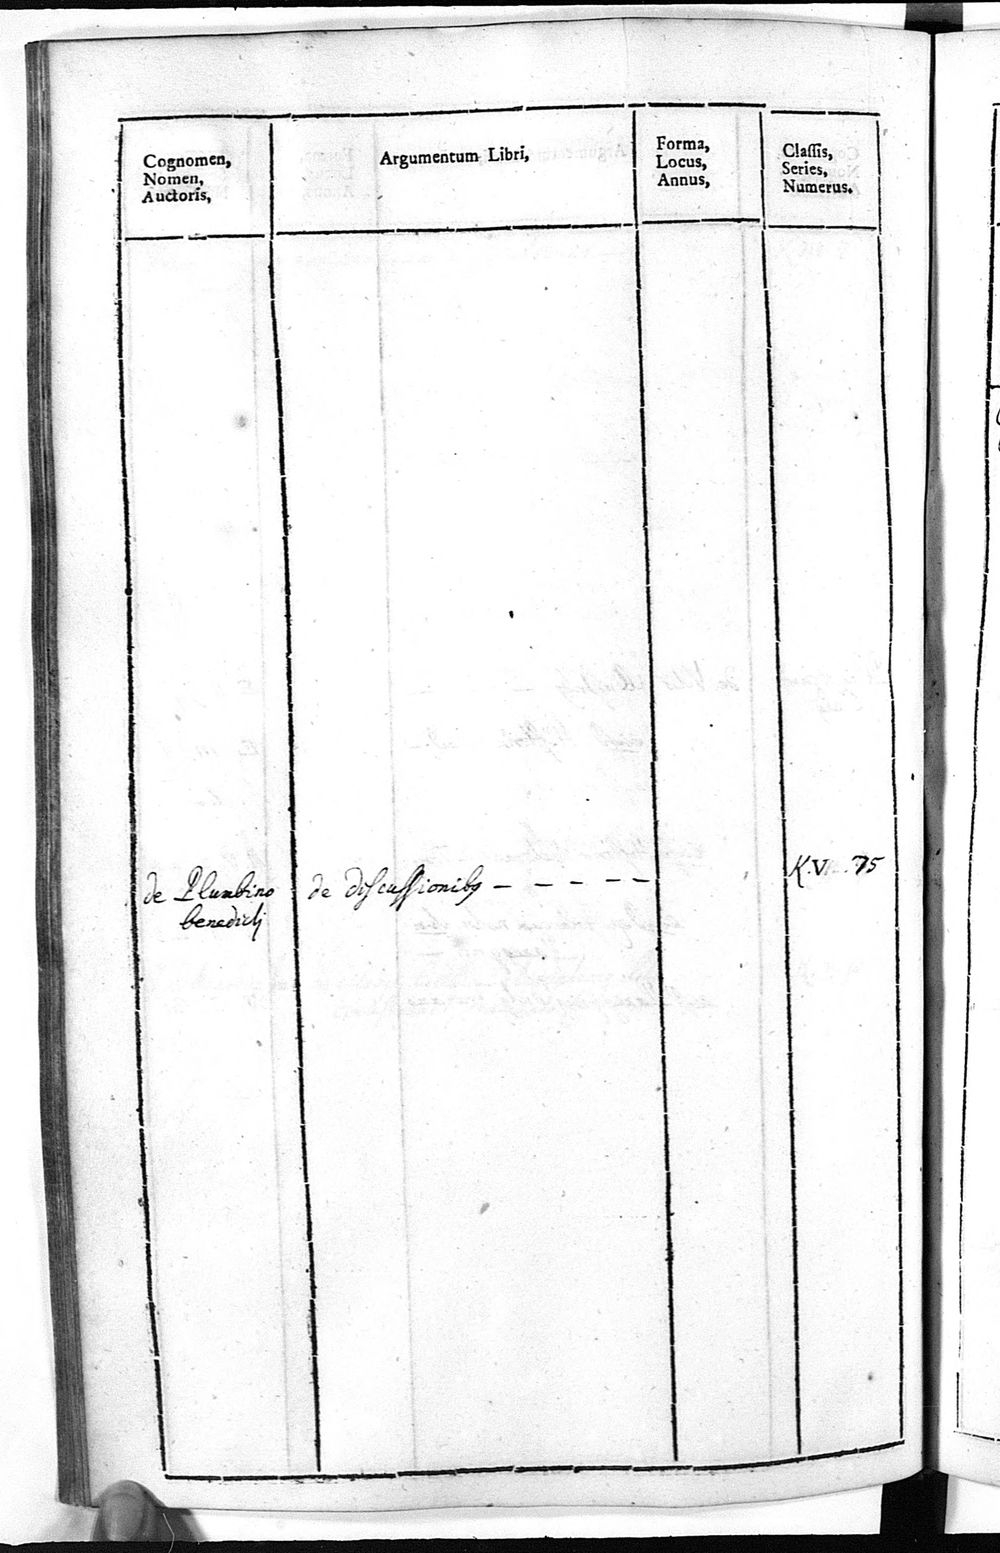 Cognomen,
Nomen,
Auctoris,
Argumentum Libri,
Forma,
Locus,
Annus,
Classis,
Series,
Numerus.
de Plumbino de discussionibꝯ - - - - - K. VI. 75
benedicti